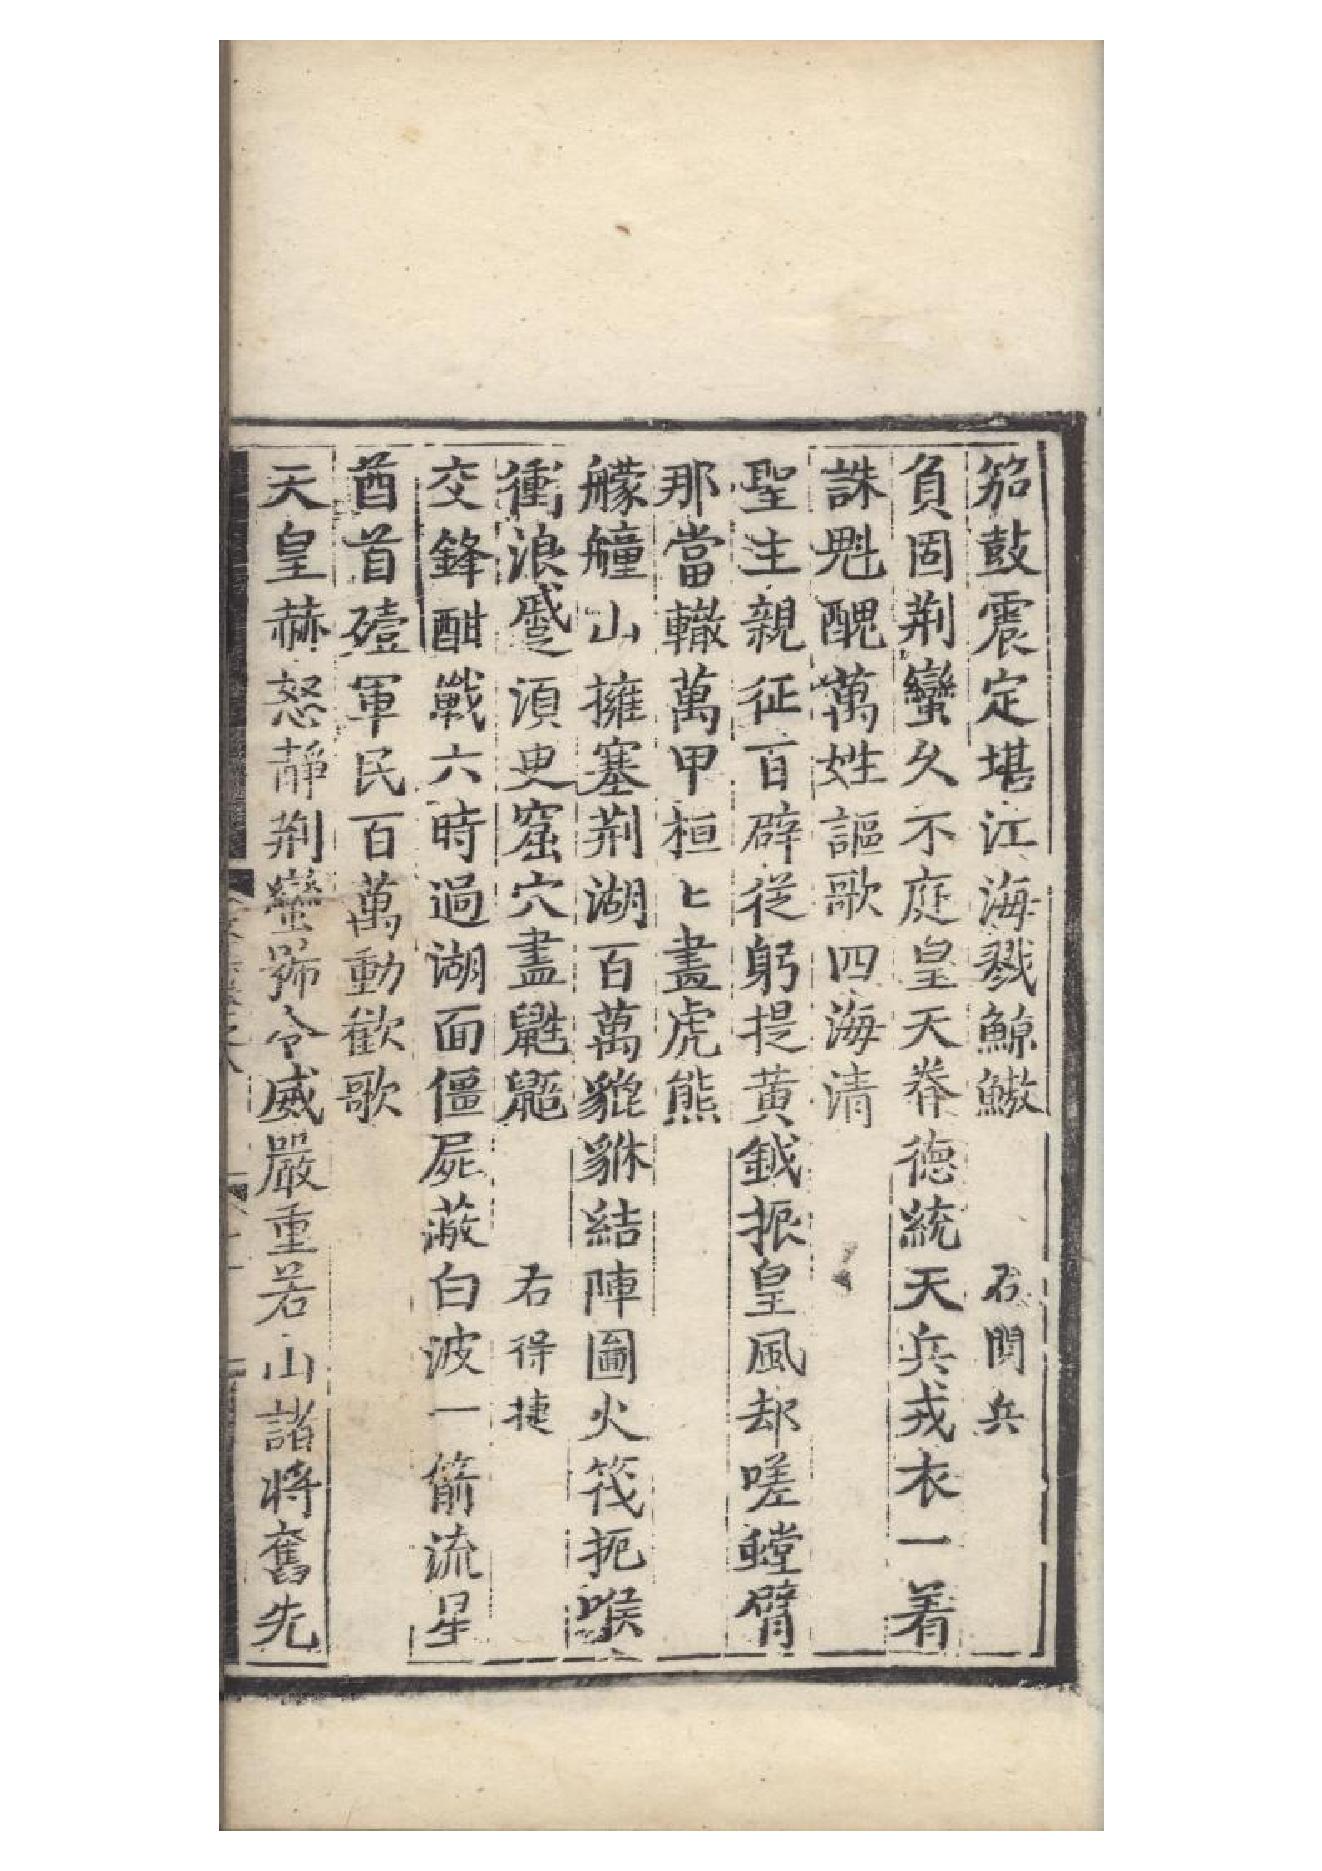 笳鼓震定堪江海戮鯨鰲　右閱兵
負固荆蠻久不庭皇天眷德統天兵戎衣一着
誅剋醜萬姓謳歌四海清
聖主親征百辟從躬提黃鉞振皇風却嗟螳臂
那當轍萬甲桓匕盡虎熊
艨艟山擁塞荆湖百萬貔貅結陣圖火筏扼喉
衝浪蹙須臾窟穴盡鼪鼯　右得捷
交鋒酣戰六時過湖面僵屍蔽白波一箭流星
酋首殪軍民百萬動歡歌
天皇赫怒靜荆蠻號令威嚴重若山諸將奮先